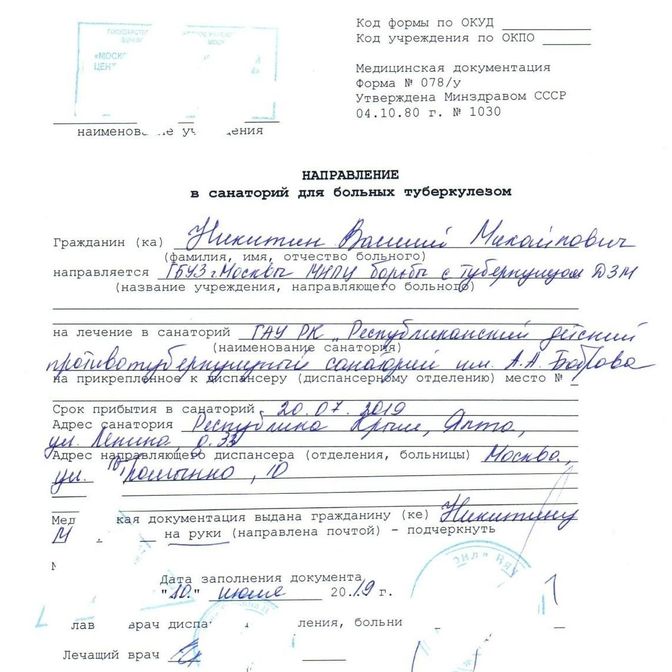 Код формы по ОКУД
Код учреждения по ОКПО
Медицинская документация
Форма № 078/у
Утверждена Минздравом СССР
04.10.80 г. № 1030
НАПРАВЛЕНИЕ
в санаторий для больных туберкулезом
Гражданин (ка) Никитин Василий Михайлович
(фамилия, имя, отчество больного)
направляется ГБУЗ г. Москвы МНПЦ борьбы с туберкулезом ДЗМ
(название учреждения, направляющего больного)
на лечение в санаторий ГАУ РК "Республиканский детский
(наименование санатория)
противотуберкулезный санаторий им. А.А. Боброва
на прикрепленное к диспансеру (диспансерному отделению) место №
Срок прибытия в санаторий 20.07.2019
Адрес санатория Республика Крым, Ялта,
ул. Ленина, д. 33
Адрес направляющего диспансера (отделения, больницы) Москва,
ул. 10
документация выдана гражданину (ке) Никитину
на руки (направлена почтой) - подчеркнуть
Дата заполнения документа
"10." июля 2019 г.
врач
Лечащий врач